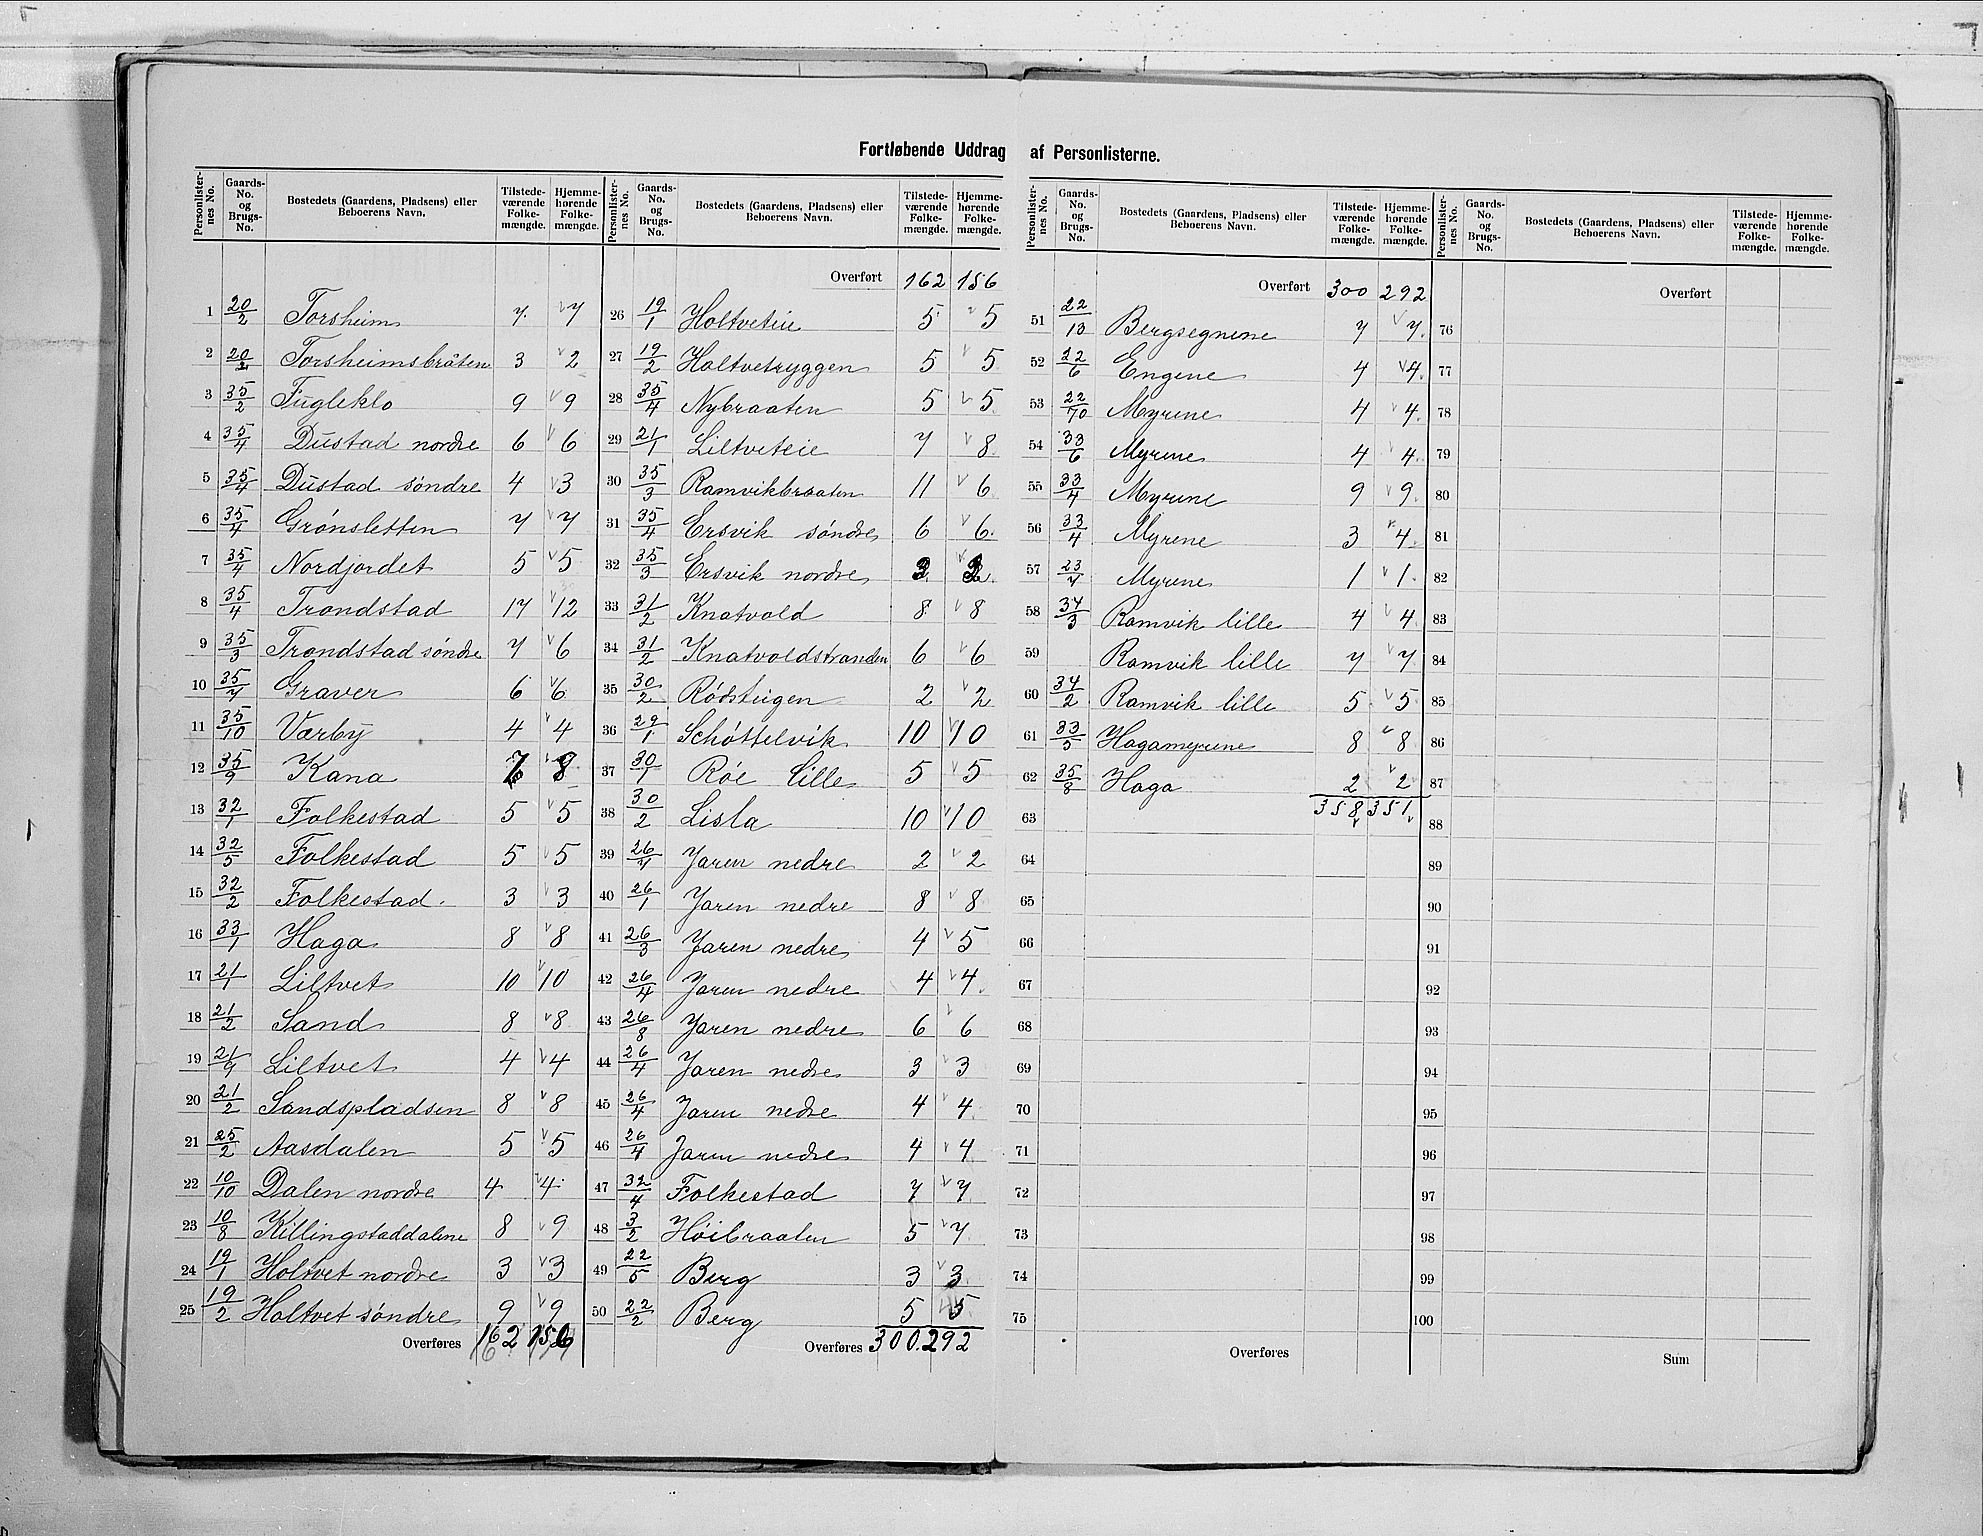 Fortløbende Uddrag af Personlisterne.
Personlister-nes No. Gaards-No. og Brugs-No. Bostedets (Gaardens, Pladsens) eller Beboerens Navn. Tilstede-værende Folke-mængde. Hjemme-hørende Folke-mængde.
1 20/2 Torsheim 7. 7
2 20/2 Torsheimsbråten 3 2
3 35/2 Fugleklo 9 9
4 35/4 Dustad nordre 6 6
5 35/4 Dustad søndre 4 3
6 35/4 Grønsletten 7 7
7 35/4 Nordjordet 5 5
8 35/4 Trondstad 17 12
9 35/3 Trondstad søndre 7 6
10 35/7 Graver 6 6
11 35/10 Værby 4 4
12 35/9 Kana 7 8
13 32/1 Folkestad 5 5
14 32/5 Folkestad 5 5
15 32/2 Folkestad. 3 3
16 33/1 Haga 8 8
17 21/1 Liltvet 10 10
18 21/2 Sand 8 8
19 21/4 Liltvet 4 4
20 21/2 Sandspladsen 8 8
21 25/2 Aasdalen 5 5
22 10/10 Dalen nordre 4 4
23 10/8 Killingstaddalene 8 9
24 19/1 Holtvet nordre 3 3
25 19/2 Holtvet søndre 9 9
Overføres 162 156
Personlister-nes No. Gaards-No. og Brugs-No. Bostedets (Gaardens, Pladsens) eller Beboerens Navn. Tilstede-værende Folke-mængde. Hjemme-hørende Folke-mængde.
Overført 162 156
26 19/1 Holtveteie 5 5
27 19/2 Holtvetryggen 5 5
28 35/4 Nybraaten 5 5
29 21/1 Liltveteie 7 8
30 35/3 Ramvikbraaten 11 6
31 35/4 Ersvik søndre 6 6.
32 35/3 Ersvik nordre
33 31/2 Knatvold 8 8
34 31/2 Knatvoldstranden 6 6
35 30/2 Rødsteigen 2 2
36 29/1 Schøttelvik 10 10
37 30/1 Røe lille 5 5
38 30/2 Lisla 10 10
39 26/7 Jaren nedre 2 2
40 26/1 Jaren nedre 8 8
41 26/3 Jaren nedre 4 5
42 26/4 Jaren nedre 4 4
43 26/8 Jaren nedre 6 6
44 26/4 Jaren nedre 3 3
45 26/4 Jaren nedre 4 4
46 26/4 Jaren nedre 4 4
47 32/4 Folkestad 7 7
48 3/2 Høibraaten 5 7
49 22/5 Berg 3 3
50 22/2 Berg 5 5
Overføres 300 292
Personlister-nes No. Gaards-No. og Brugs-No. Bostedets (Gaardens, Pladsens) eller Beboerens Navn. Tilstede-værende Folke-mængde. Hjemme-hørende Folke-mængde.
Overført 300 292
51 22/13 Bergsegnene 7 7.
52 22/6 Engene 4 4.
53 22/70 Myrene 4 4.
54 33/6 Myrene 4 4.
55 33/4 Myrene 9 9.
56 33/4 Myrene 3 4.
57 23/7 Myrene 1 1.
58 34/3 Ramvik lille 4 4.
59 Ramvik lille 7 7
60 34/2 Ramvik lille 5 5
61 33/5 Hagamyrene 8 8
62 35/8 Haga 2 2
358 351
63
64
65
66
67
68
69
70
71
72
73
74
75
Overføres
Personlister-nes No. Gaards-No. og Brugs-No. Bostedets (Gaardens, Pladsens) eller Beboerens Navn. Tilstede-værende Folke-mængde. Hjemme-hørende Folke-mængde.
Overført
76
77
78
79
80
81
82
83
84
85
86
87
88
89
90
91
92
93
94
95
96
97
98
99
100
Sum